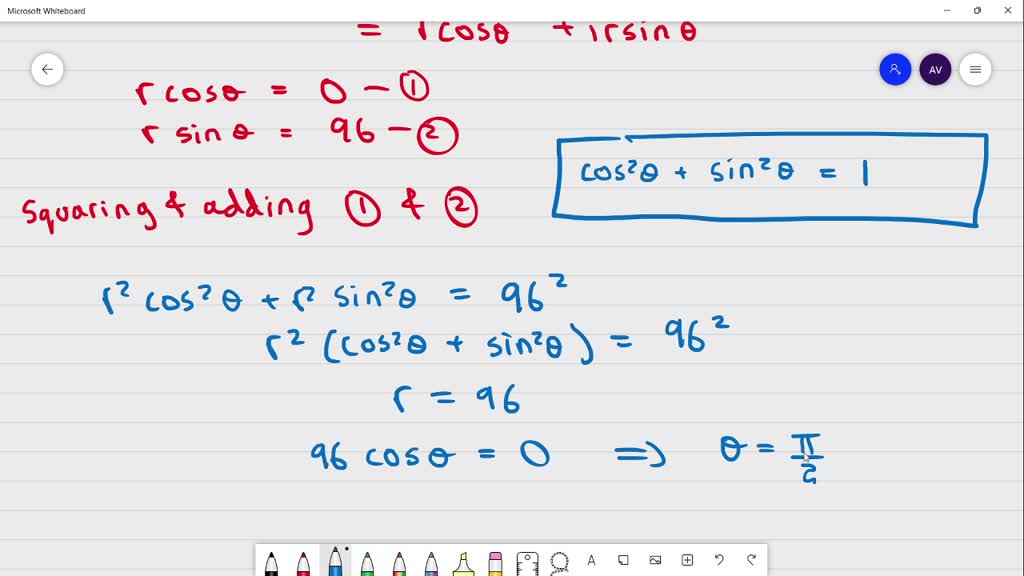 Microsoft Whiteboard
= rcosθ + irsinθ
AV
r cosθ = 0 - ①
r sinθ = 96 - ②
cos²θ + sin²θ = 1
Squaring & adding ① & ②
r² cos²θ + r² sin²θ = 96²
r² (cos²θ + sin²θ) = 96²
r = 96
96 cosθ = 0 ⇒ θ = π/2
A